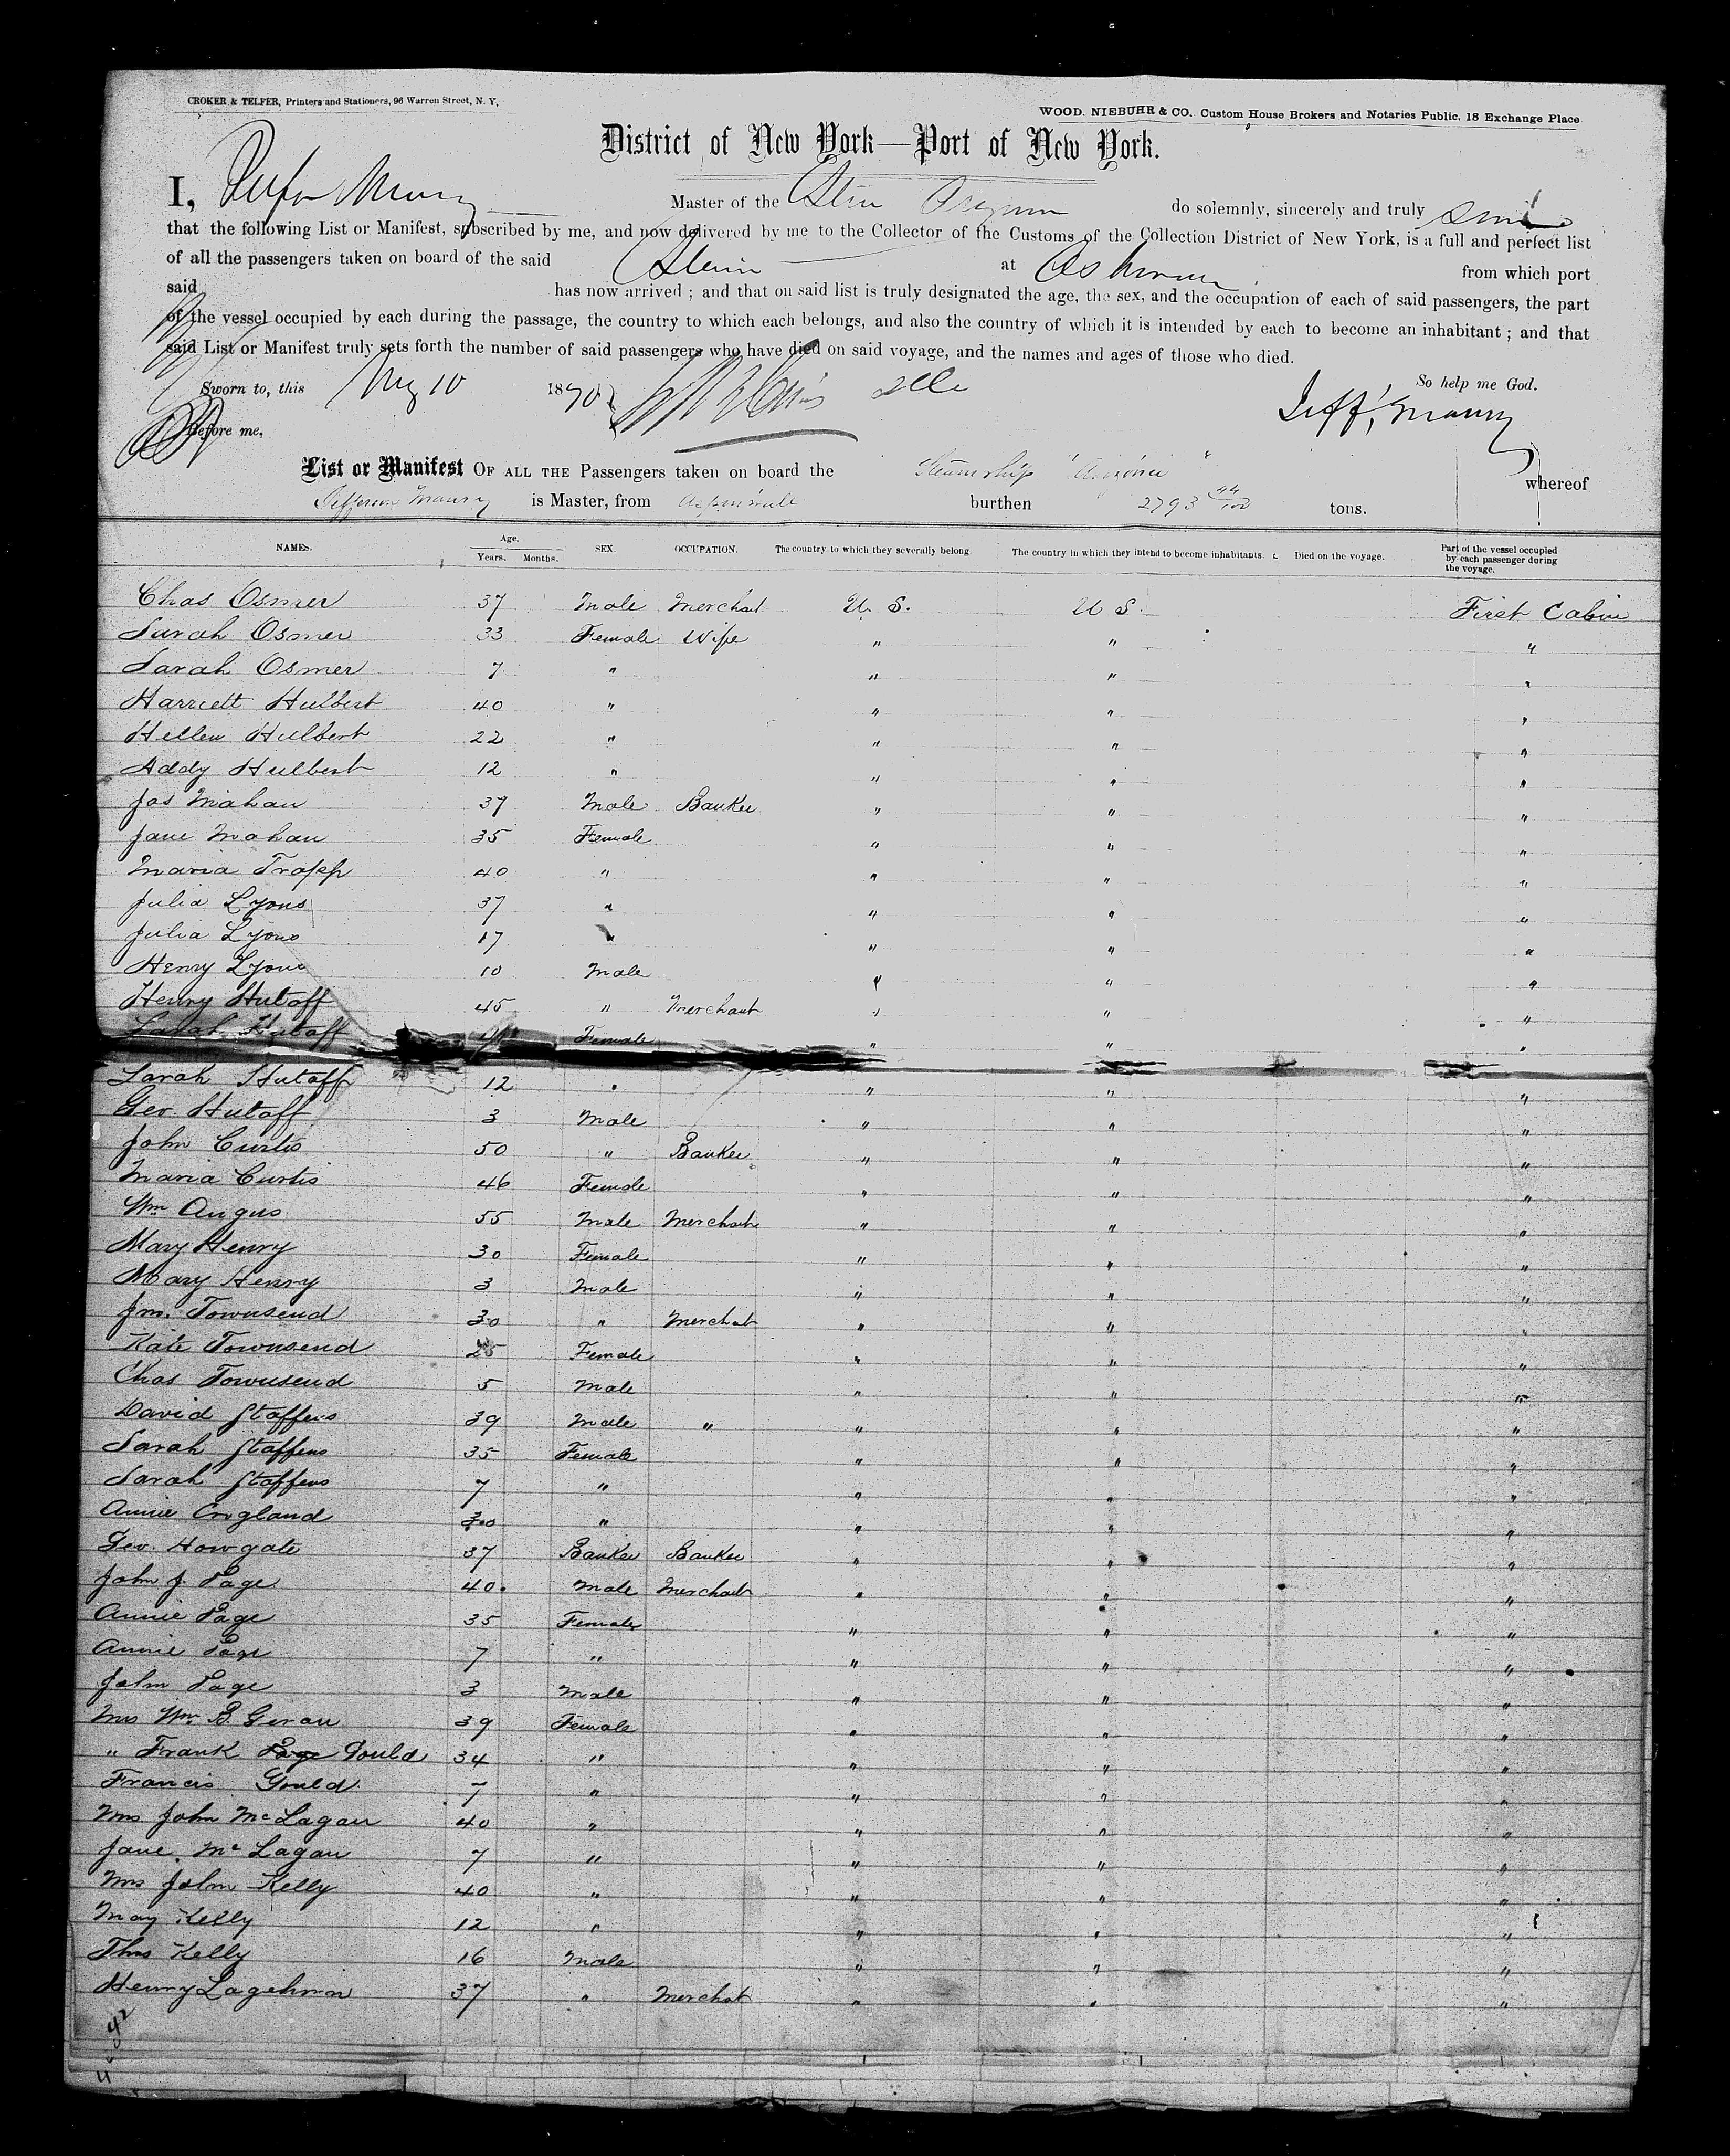 CROKER & TELFER, Printers and Stationers, 96 Warren Street, N. Y,
WOOD. NIEBUHR & CO., Custom House Brokers and Notaries Public, 18 Exchange Place
District of New York—Port of New York.
I, Master of the do solemnly, sincerely and truly
that the following List or Manifest, subscribed by me, and now delivered by me to the Collector of the Customs of the Collection District of New York, is a full and perfect list
of all the passengers taken on board of the said at from which port
said has now arrived ; and that on said list is truly designated the age, the sex, and the occupation of each of said passengers, the part
of the vessel occupied by each during the passage, the country to which each belongs, and also the country of which it is intended by each to become an inhabitant ; and that
said List or Manifest truly sets forth the number of said passengers who have died on said voyage, and the names and ages of those who died.
Sworn to, this 10 1870 So help me God.
Before me, Jeff, Maury
List or Manifest OF ALL THE Passengers taken on board the Steamship whereof
Jefferson Maury is Master, from burthen 2793 44/100 tons.
NAMES. Age. Years. Months. SEX. OCCUPATION. The country to which they severally belong. The country in which they intend to become inhabitants. Died on the voyage. Part of the vessel occupied by each passenger during the voyage.
Chas Osmer 37 Male Merchant U. S. U S. First Cabin
Sarah Osmer 33 Female Wife " " "
Sarah Osmer 7 " " " "
Harriett Hulbert 40 " " " "
Hellen Hulbert 22 " " " "
Addy Hulbert 12 " " " "
Jas Mahan 37 Male Banker " " "
Jane Mahan 35 Female " " "
Maria Trapp 40 " " " "
Julia Lyons 37 " " " "
Julia Lyons 17 " " " "
Henry Lyons 10 Male " " "
Henry Hutaff 45 " Merchant " " "
Sarah Hutaff Female " " "
Sarah Hutaff 12 " " " "
Geo. Hutaff 3 Male " " "
John Curtis 50 " Banker " " "
Maria Curtis 46 Female " " "
Wm Angus 55 Male Merchant " " "
Mary Henry 30 Female " " "
Mary Henry 3 Male " " "
Jno. Townsend 30 " Merchat " " "
Kate Townsend 25 Female " " "
Chas Townsend 5 Male " " "
David Staffens 39 Male " " " "
Sarah Staffens 35 Female " " "
Sarah Staffens 7 " " " "
Annie England 30 " " " "
Geo. Howgate 37 Banker Banker " " "
John J. Page 40. Male Merchant " " "
Annie Page 35 Female " " "
Annie Page 7 " " " "
John Page 3 Male " " "
Mrs Wm B. Geran 39 Female " " "
" Frank Page Gould 34 " " " "
Francis Gould 7 " " " "
Mrs John McLagan 40 " " " "
Jane. McLagan 7 " " " "
Mrs John Kelly 40 " " " "
May Kelly 12 " " " "
Thos Kelly 16 Male " " "
Henry 37 " Merchat " " "
42